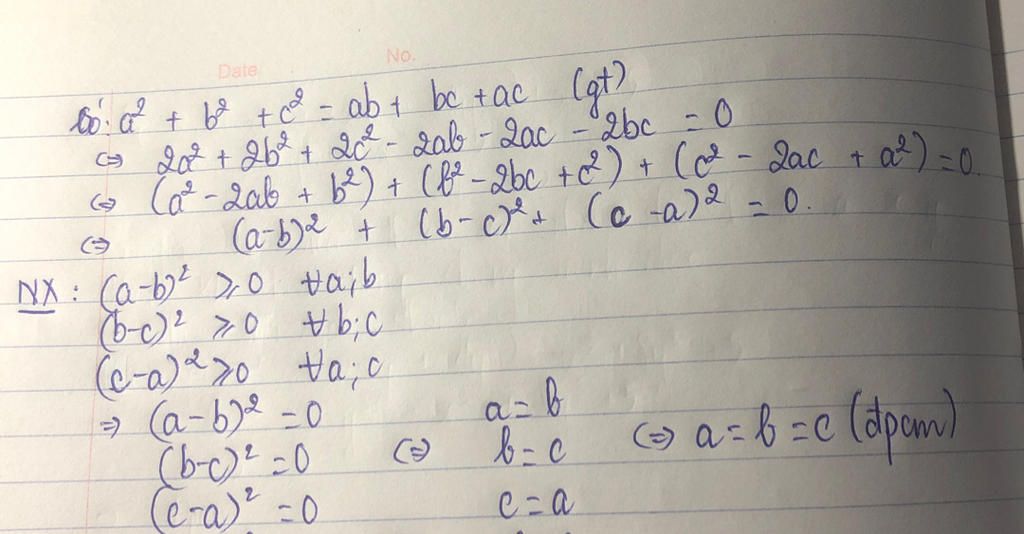 Date No.
Có: a² + b² + c² = ab + bc + ac (gt)
⇔ 2a² + 2b² + 2c² - 2ab - 2ac - 2bc = 0
⇔ (a² - 2ab + b²) + (b² - 2bc + c²) + (c² - 2ac + a²) = 0.
⇔ (a-b)² + (b-c)² + (c-a)² = 0.
NX: (a-b)² ⩾ 0 ∀a;b
(b-c)² ⩾ 0 ∀b;c
(c-a)² ⩾ 0 ∀a;c
⇒ (a-b)² = 0 a = b
(b-c)² = 0 ⇔ b = c ⇔ a = b = c (đpcm)
(c-a)² = 0 c = a